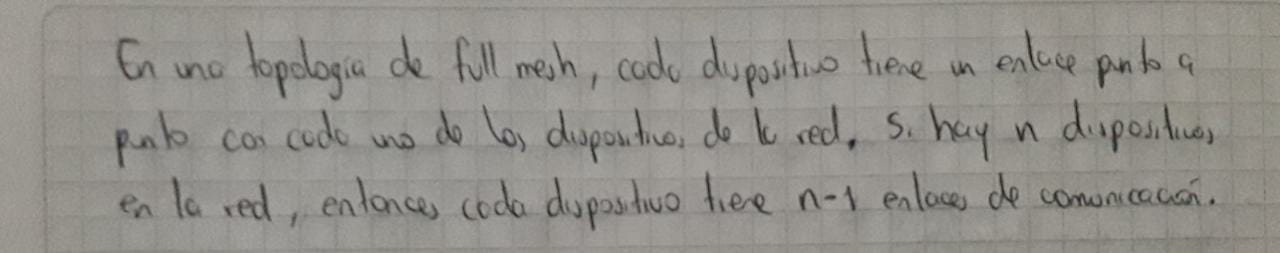 En una topologia de full mesh, cada dispositivo tiene un enlace punto a
punto con cada uno de los dispositivos de la red. Si hay n dispositivos
en la red, entonces cada dispositivo tiene n-1 enlaces de comunicación.